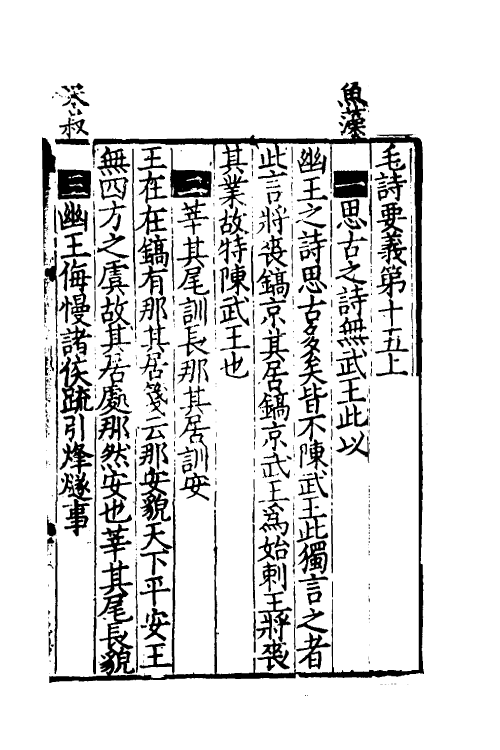 魚藻
毛詩要義第十五上
一思古之詩無武王此以
幽王之詩思古多矣皆不陳武王此獨言之者
此言將喪鎬京其居鎬京武王爲始刺王將喪
其業故特陳武王也
二莘其尾訓長那其居訓安
王在在鎬有那其居箋云那安貌天下平安王
無四方之虞故其居處那然安也莘其尾長貌
三幽王侮慢諸侯䟽引烽燧事
采叔